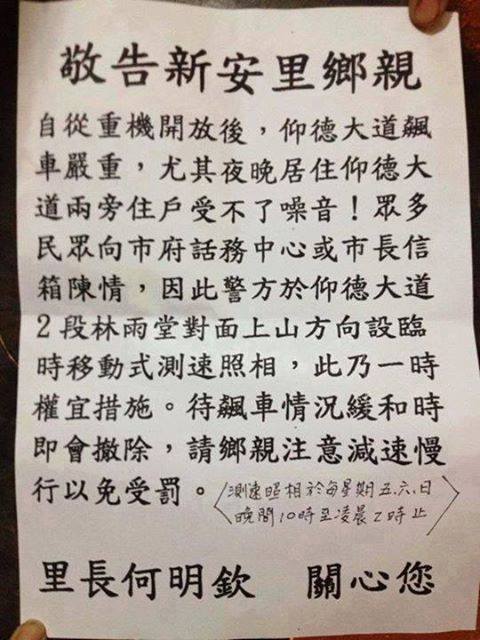 敬告新安里鄉親
自從重機開放後，仰德大道飆
車嚴重，尤其夜晚居住仰德大
道兩旁住戶受不了噪音！眾多
民眾向市府話務中心或市長信
箱陳情，因此警方於仰德大道
2段林雨堂對面上山方向設臨
時移動式測速照相，此乃一時
權宜措施。待飆車情況緩和時
即會撤除，請鄉親注意減速慢
行以免受罰。
測速照相於每星期五.六.日
晚間10時至凌晨2時止
里長何明欽　關心您